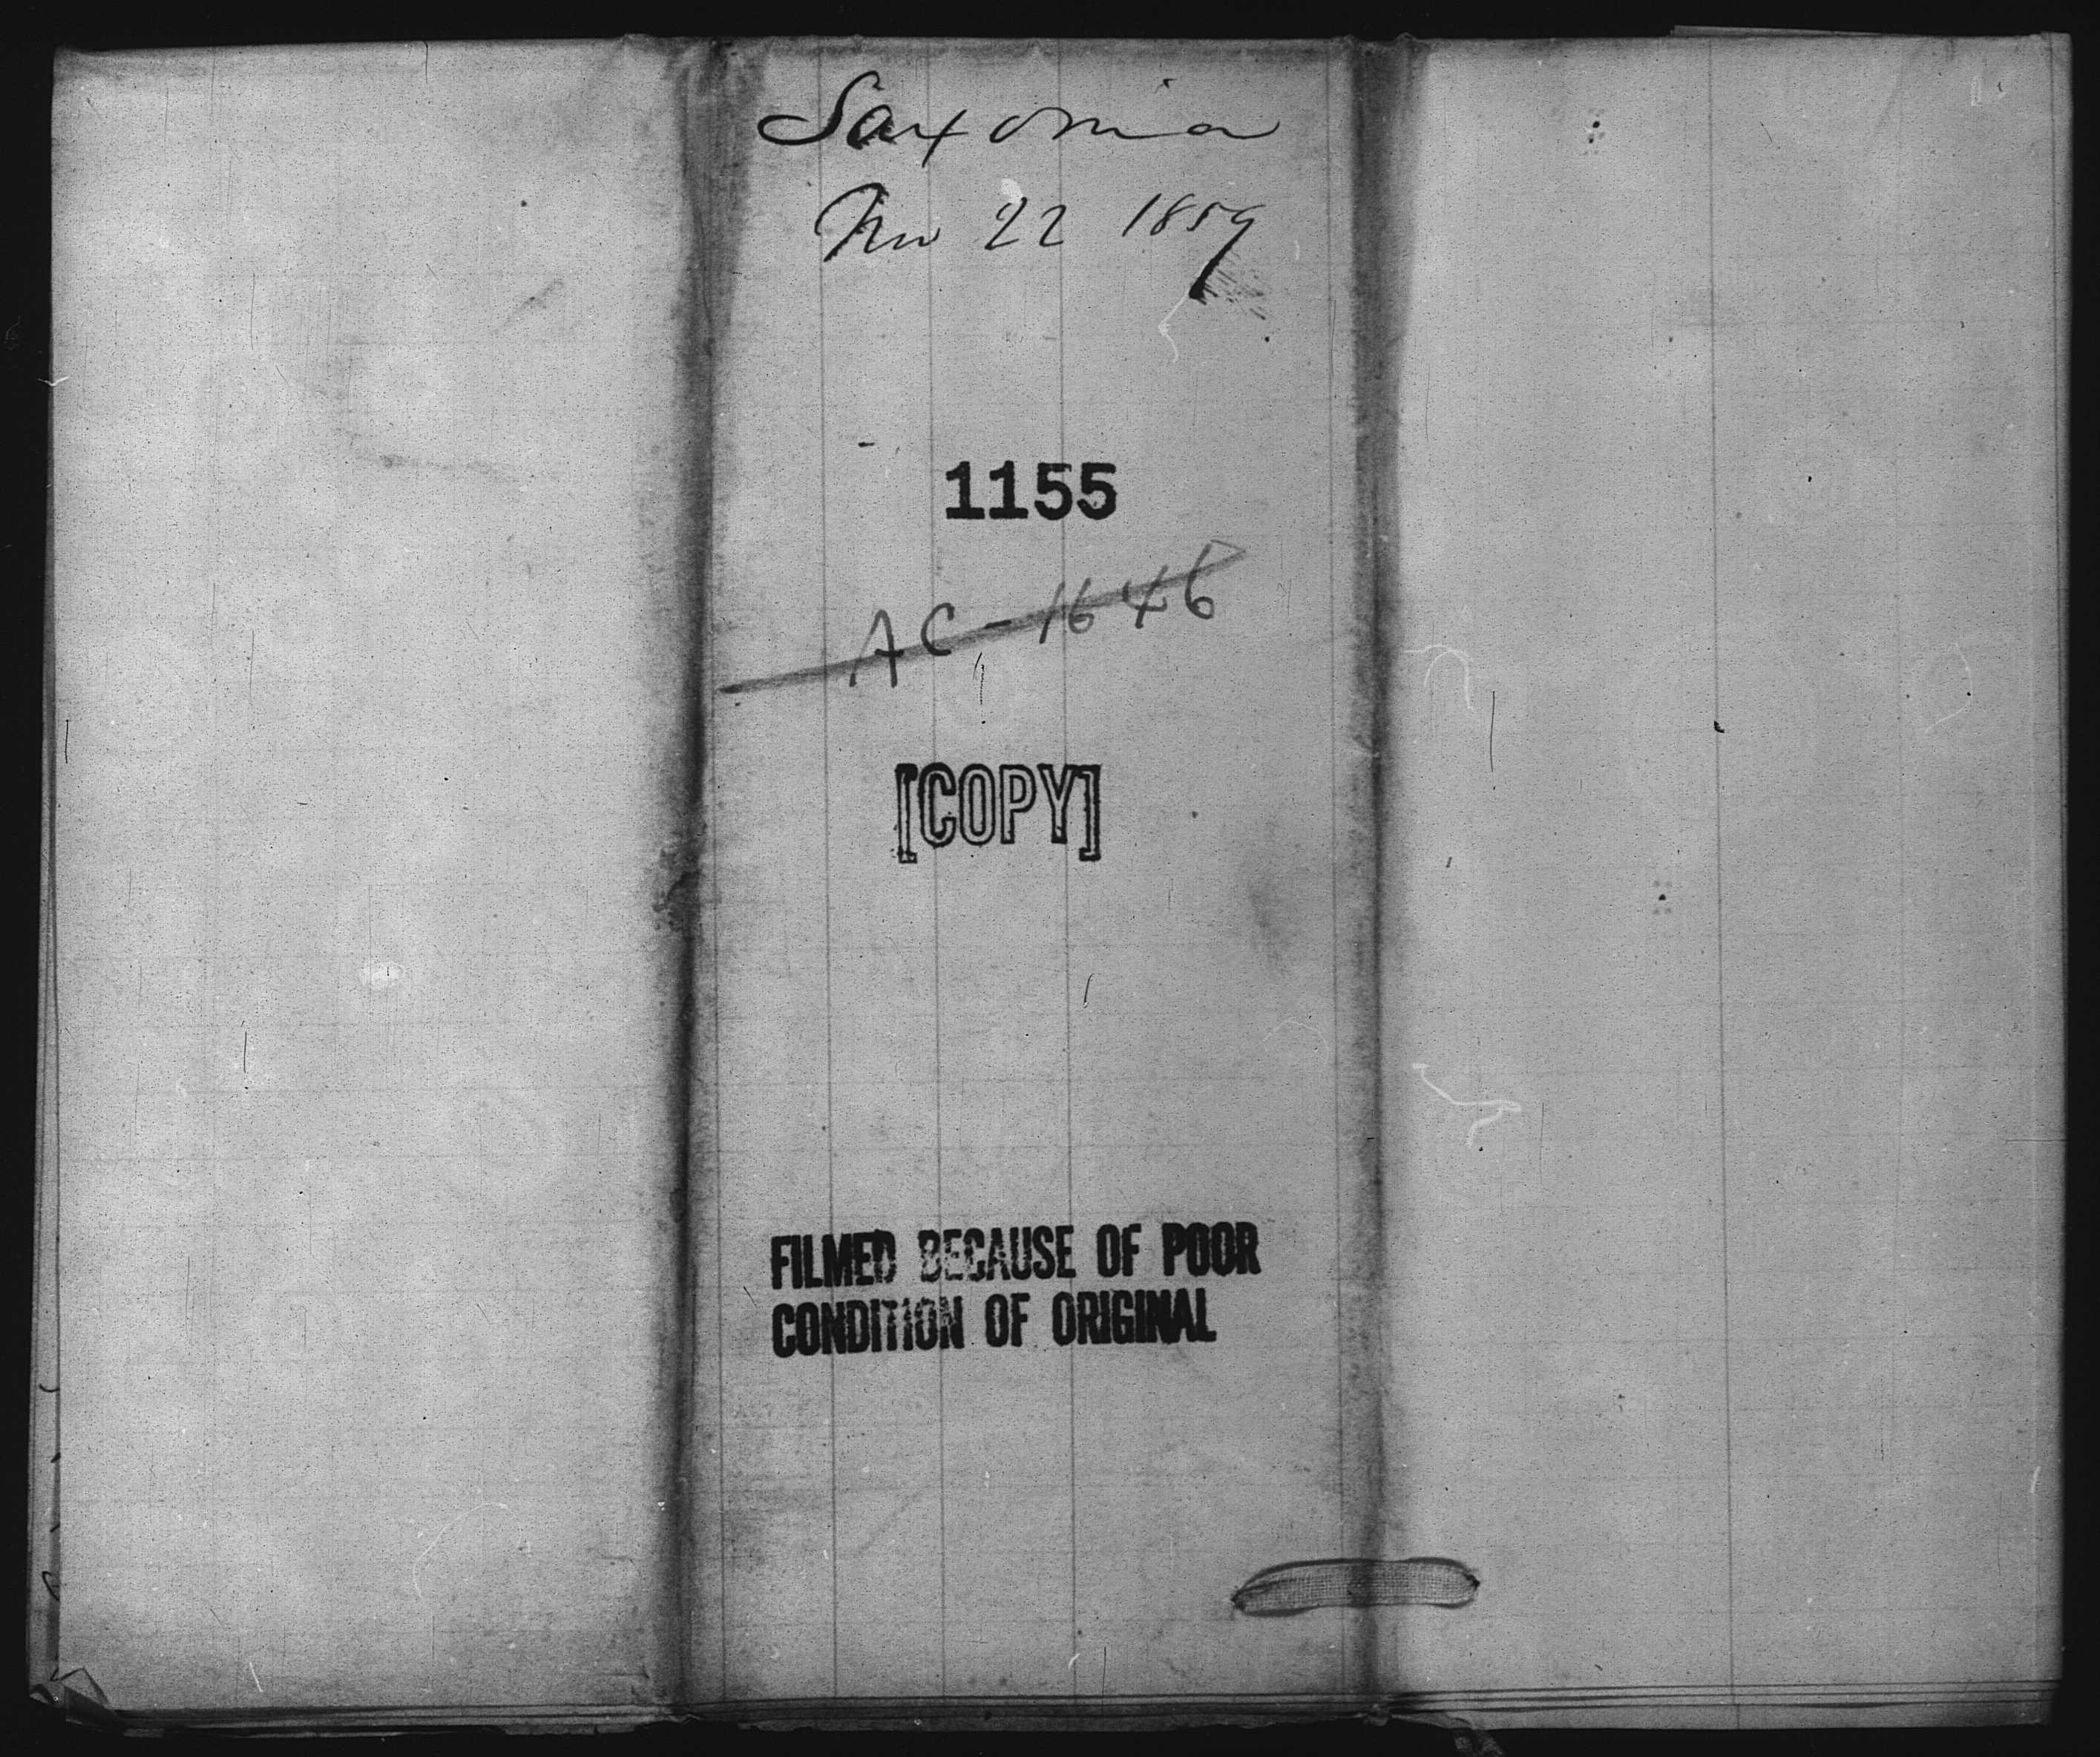 Saxonia
Nov 22 1859
1155
AC-1646
[COPY]
FILMED BECAUSE OF POOR
CONDITION OF ORIGINAL